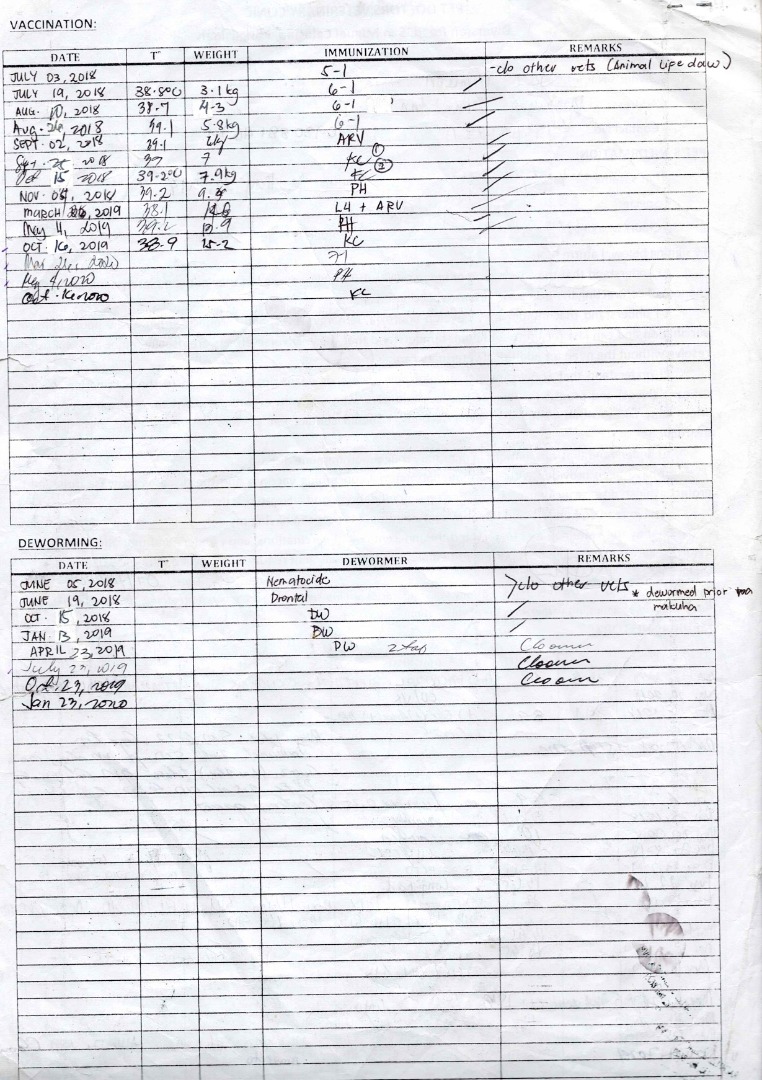 VACCINATION:
DATE T° WEIGHT IMMUNIZATION REMARKS
JULY 03, 2018 5-1 -c/o other vets (Animal Lipe daw)
JULY 19, 2018 38.8°C 3.1 kg 6-1
AUG. 10, 2018 38.7 4.3 6-1
Aug. 26, 2018 39.1 5.8kg 6-1
SEPT. 02, 2018 39.1 ARV
Sept. 25 2018 7 KC ①
Oct 15 2018 39.2°C 7.9kg KC ②
NOV. 2018 39.2 PH
MARCH 2019 38.1 L4 + ARV
May 4, 2019 39.2 PH
OCT. 16, 2019 38.9 15.2 KC
PH
KC
DEWORMING:
DATE T° WEIGHT DEWORMER REMARKS
JUNE 05, 2018 Nematocide >c/o other vets
JUNE 19, 2018 Drontal * dewormed prior makuha
OCT. 15, 2018 DW
JAN. 13, 2019 DW
APRIL 23, 2019 DW
July 23, 2019
Oct. 23, 2019
Jan 23, 2020